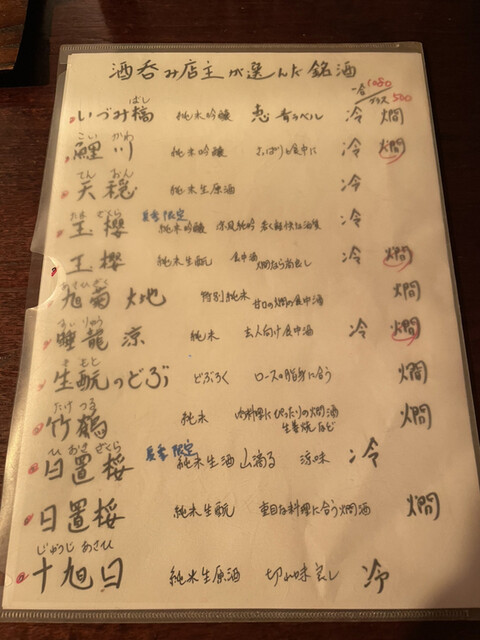 酒呑み店主が選んだ銘酒
一合 1080
グラス 500
いづみ橋 ばし 純米吟醸 恵 青ラベル 冷 燗
鯉川 こい がわ 純米吟醸 さっぱりと食中に 冷 燗
天穏 てん おん 純米生原酒 冷
玉櫻 たま ざくら 夏季限定 純米吟醸 冷
玉櫻 純米生酛 食中酒 燗なら尚良し 冷 燗
旭菊 大地 あさひぎく 特別純米 甘口の燗の食中酒 燗
睡龍 涼 すい りゅう 純米 玄人向け食中酒 冷 燗
生酛のどぶ き もと どぶろく ロースの脂身に合う 燗
竹鶴 たけ つる 純米 肉料理にぴったりの燗酒 生姜焼など 燗
日置桜 ひ おき ざくら 夏季限定 純米生酒 山滴る 涼味 冷
日置桜 純米生酛 重目な料理に合う燗酒 燗
十旭日 じゅうじ あさひ 純米生原酒 切れ味良し 冷